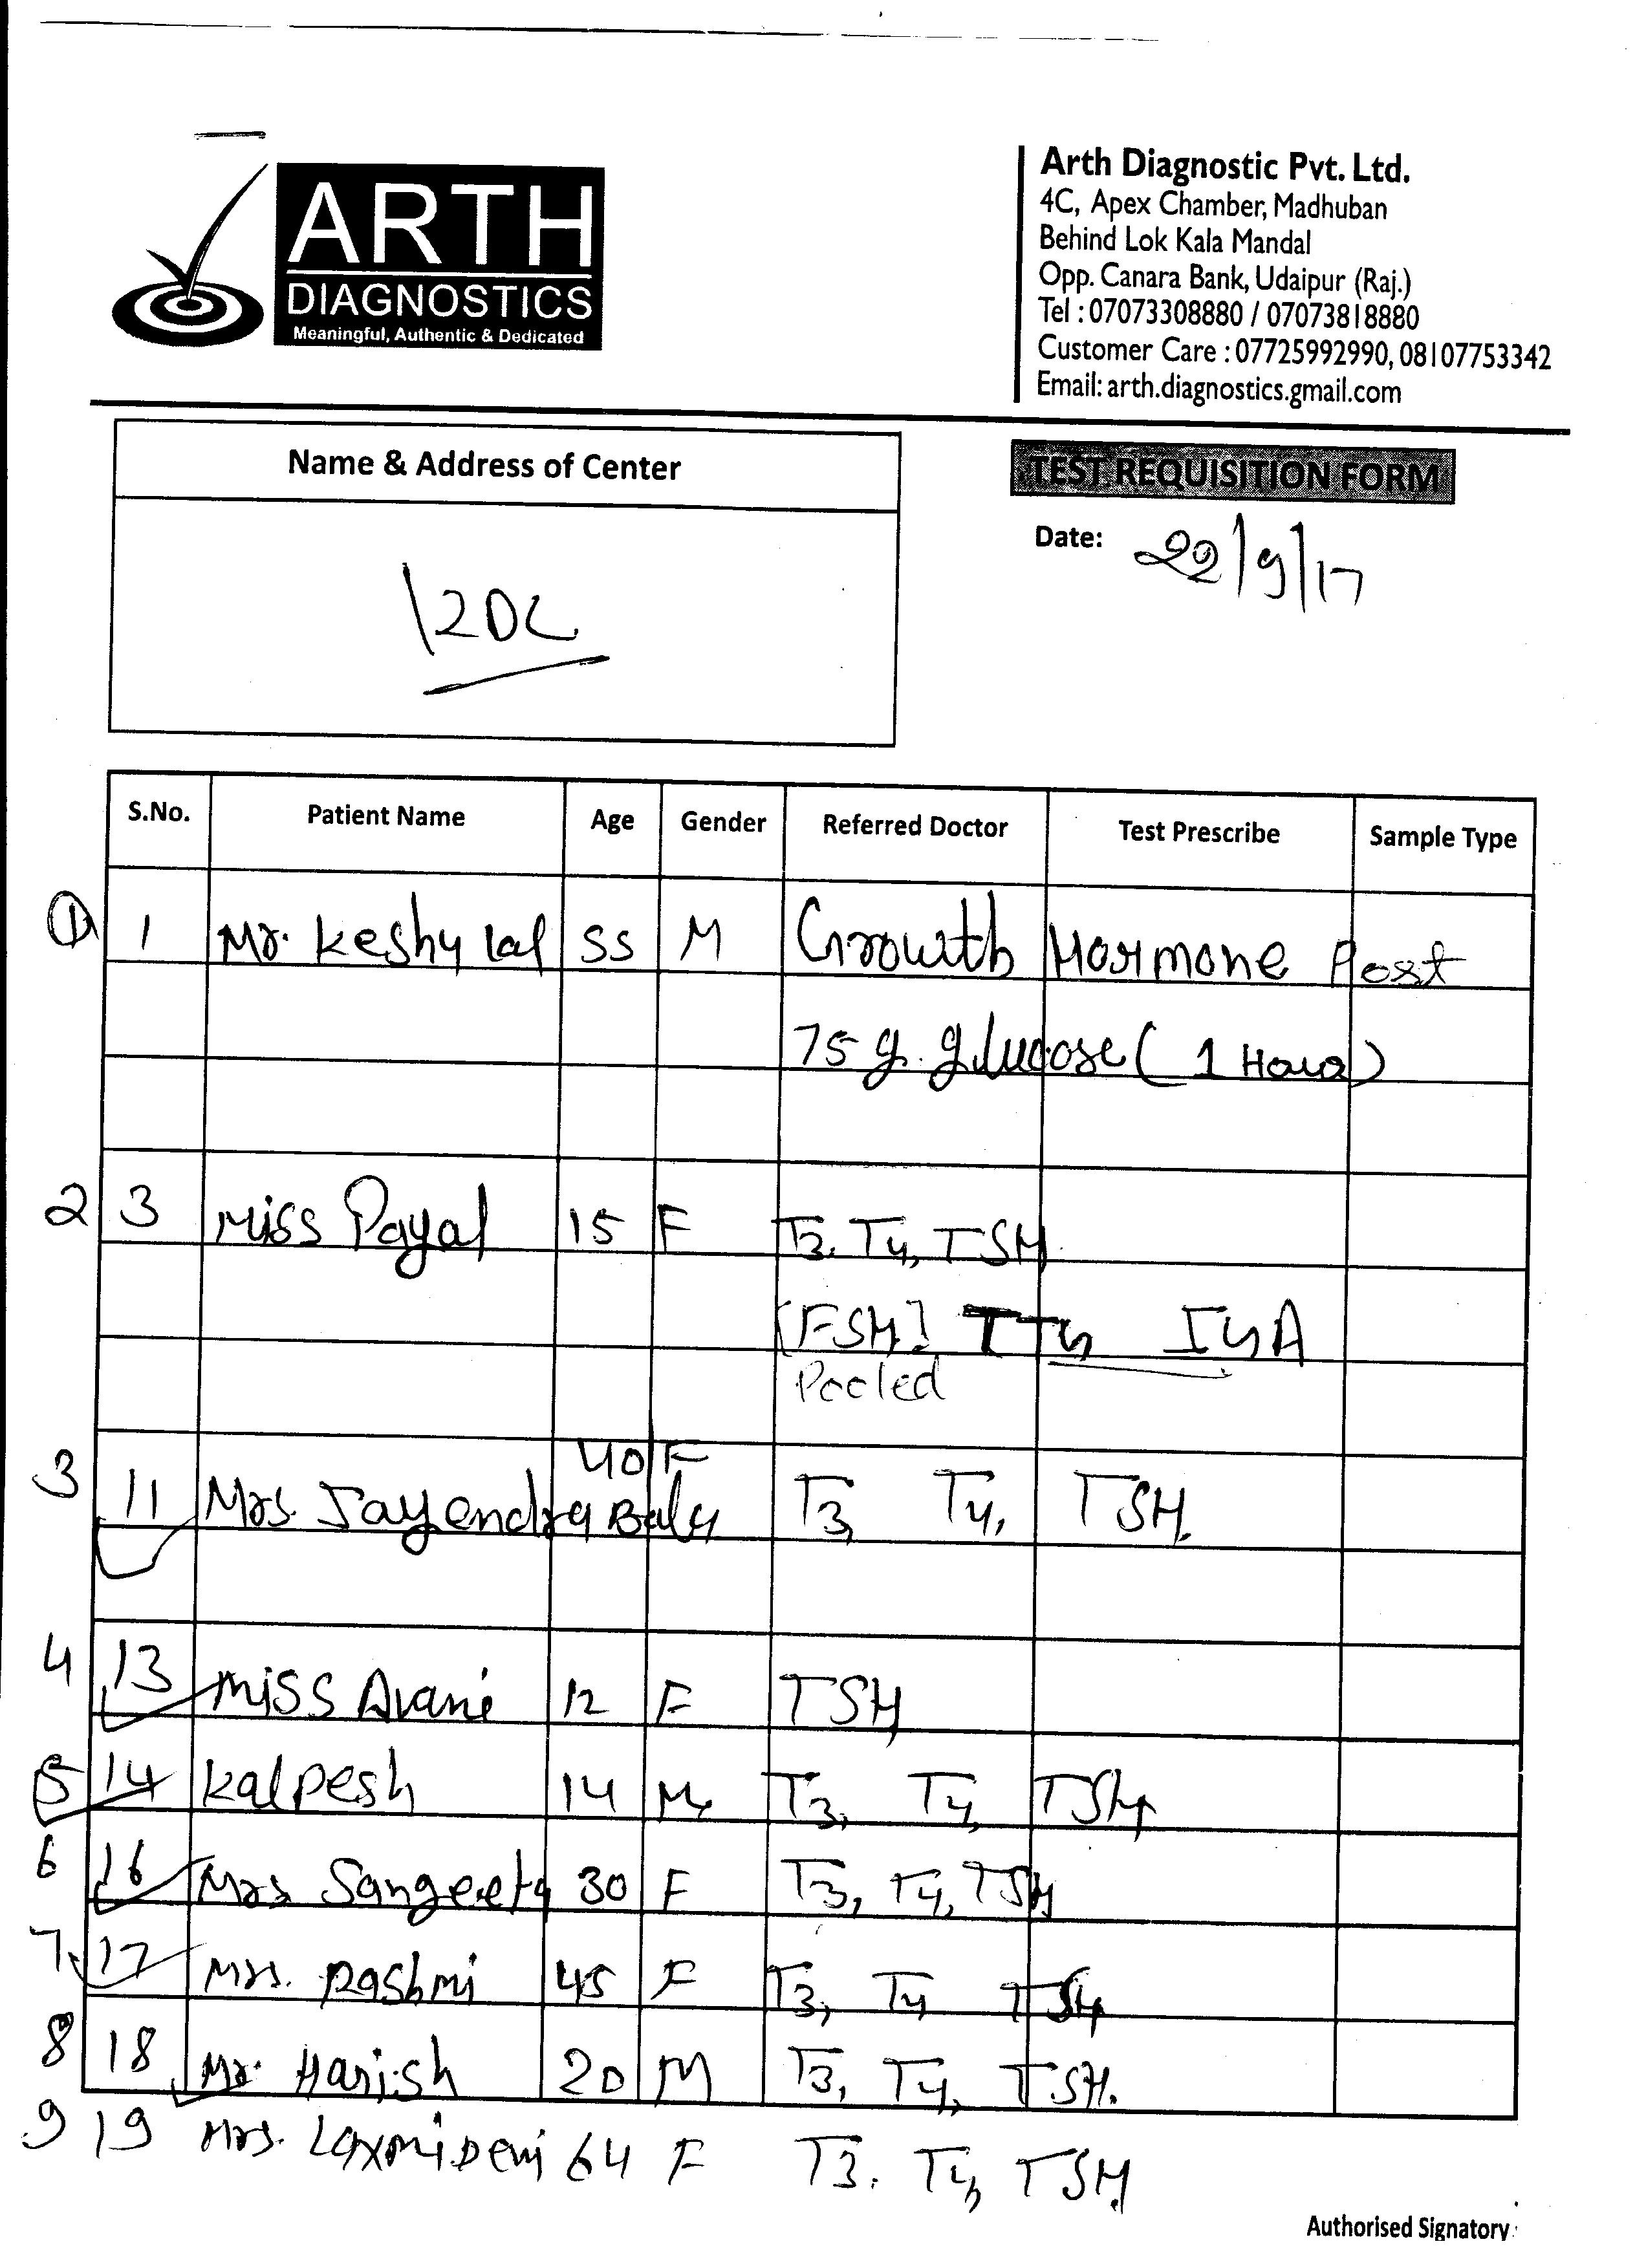 ARTH
DIAGNOSTICS
Meaningful, Authentic & Dedicated
Arth Diagnostic Pvt. Ltd.
4C, Apex Chamber, Madhuban
Behind Lok Kala Mandal
Opp. Canara Bank, Udaipur (Raj.)
Tel : 07073308880 / 07073818880
Customer Care : 07725992990, 08107753342
Email: arth.diagnostics.gmail.com
Name & Address of Center
TEST REQUISITION FORM
Date: 22/9/17
S.No. Patient Name Age Gender Referred Doctor Test Prescribe Sample Type
1 1 Mr. Keshy lal 55 M Growth Hormone Post
75 g. glucose ( 1 Hour)
2 3 Miss Payal 15 F T3, T4, TSH
[FSH] TTG IgA
Pooled
40 F
3 11 Mrs. Jayendra Bala T3, T4, TSH.
4 13 Miss Avani 12 F TSH
5 14 Kalpesh 14 M T3, T4, TSH
6 16 Mrs Sangeeta 30 F T3, T4, TSH
7 17 Mrs. Rashmi 45 F T3, T4 TSH
8 18 Mr. Harish 20 M T3, T4, TSH.
9 19 Mrs. Laxmi Devi 64 F T3. T4, TSH
Authorised Signatory